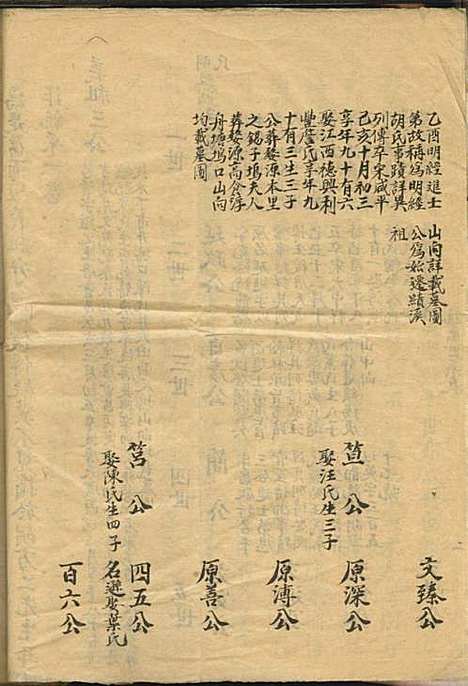 乙酉明經進士
第故稱爲明經
胡氏事蹟詳異
列傳卒宋咸平
己亥十月初三
享年九十有六
娶江西德興利
豐詹氏享年九
十有三生三子
公葬婺源本里
之錫子塢夫人
葬婺源高倉淳
舟塘塢口山向
均載墓圖
山向詳載墓圖
公爲始遷績溪
祖
䇠公
娶汪氏生三子
筥公
娶陳氏生四子
文臻公
原深公
原溥公
原善公
四五公
名遜娶葉氏
百六公